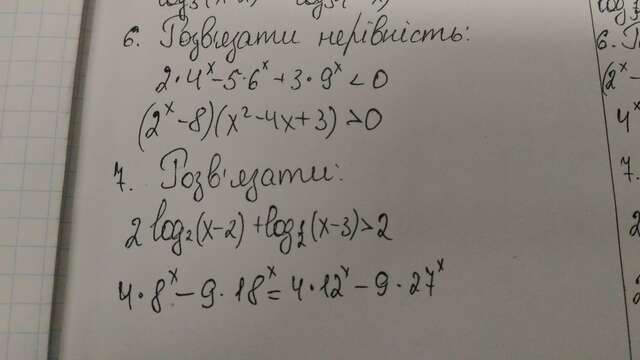 6. Розв'язати нерівність:
2·4ˣ-5·6ˣ+3·9ˣ<0
(2ˣ-8)(x²-4x+3)>0
7. Розв'язати:
2log₂(x-2)+log½(x-3)>2
4·8ˣ-9·18ˣ=4·12ˣ-9·27ˣ
6.
(2ˣ-
4ˣ
7.